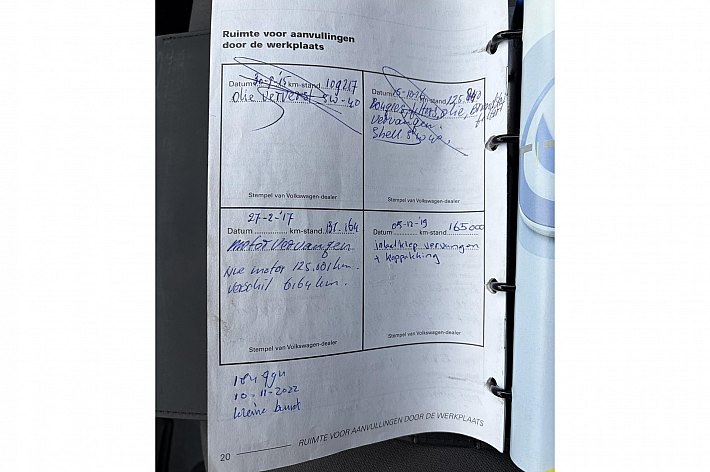 Ruimte voor aanvullingen
door de werkplaats
Datum 30-9-'15 km-stand 109217
Olie ververst 5W-40
Stempel van Volkswagen-dealer
Datum 15-10-16 km-stand 125.
Bougies, filters, olie,
vervangen.
Shell 5W40.
Stempel van Volkswagen-dealer
27-2-'17
Datum km-stand 131.164
motor vervangen
Nw motor 125.001 km.
verschil 6164 km.
Stempel van Volkswagen-dealer
Datum 05-12-19 km-stand 165000
inlaatklep vervangen
+ koppakking
Stempel van Volkswagen-dealer
10-11-2022
kleine beurt
20
RUIMTE VOOR AANVULLINGEN DOOR DE WERKPLAATS